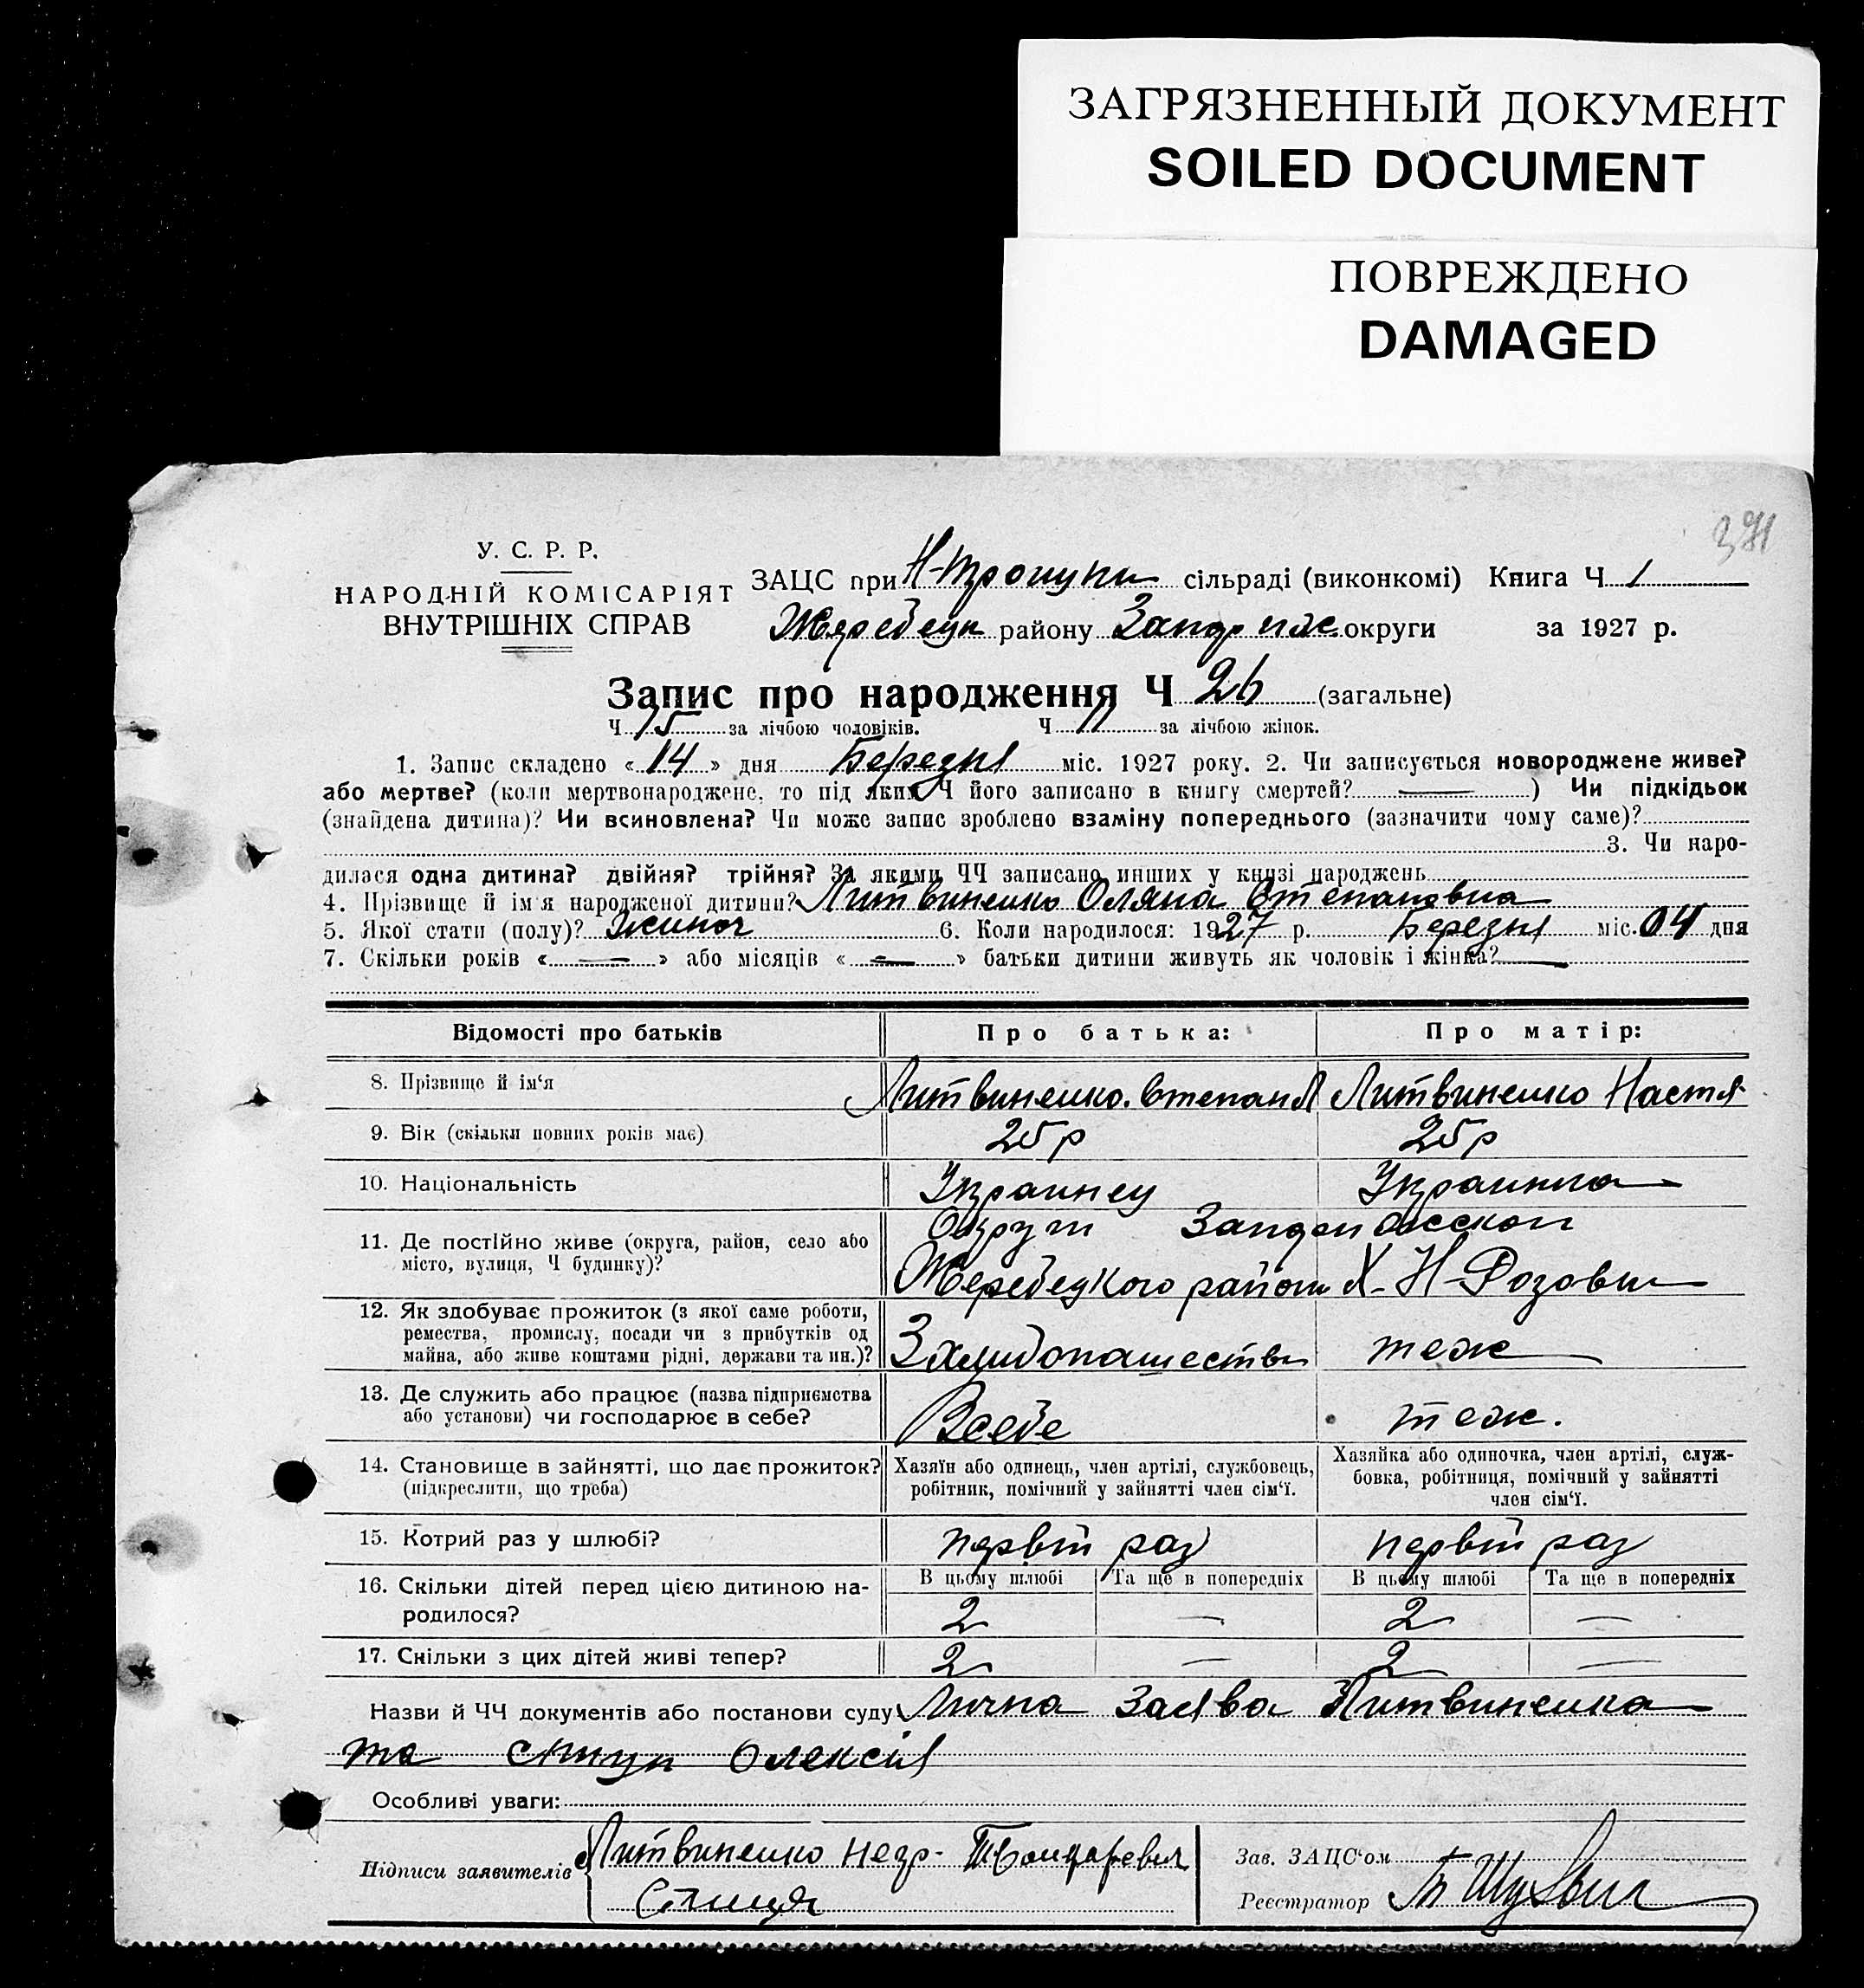 ЗАГРЯЗНЕННЫЙ ДОКУМЕНТ
SOILED DOCUMENT
ПОВРЕЖДЕНО
DAMAGED
У. С. Р. Р.
НАРОДНІЙ КОМІСАРІЯТ
ВНУТРІШНІХ СПРАВ
ЗАЦС при сільраді (виконкомі) Книга Ч. 1
району округи за 1927 р.
Запис про народження Ч 26 (загальне)
Ч 15 за лічбою чоловіків. Ч 11 за лічбою жінок.
1. Запис складено «14» дня Березня міс. 1927 року. 2. Чи записується новороджене живе?
або мертве? (коли мертвонароджене, то під яким Ч його записано в книгу смертей? — ) Чи підкідьок
(знайдена дитина)? Чи всиновлена? Чи може запис зроблено взаміну попереднього (зазначити чому саме)?
3. Чи наро-
дилася одна дитина? двійня? трійня? За якими ЧЧ записано инших у книзі народжень
4. Прізвище й ім'я народженої дитини? Литвиненко Оляна Степановна
5. Якої стати (полу)? Жиноч 6. Коли народилося: 1927 р. Березня міс. 04 дня
7. Скільки років « — » або місяців « — » батьки дитини живуть як чоловік і жінка? —
Відомості про батьків Про батька: Про матір:
8. Прізвище й ім'я Литвиненко Степан Литвиненко Настя
9. Вік (скільки повних років має) 25 р 25 р
10. Національність Украинец Украинка
11. Де постійно живе (округа, район, село або
місто, вулиця, Ч будинку)?
Округи
района Х-Н-Розовки
12. Як здобуває прожиток (з якої саме роботи,
ремества, промислу, посади чи з прибутків од
майна, або живе коштами рідні, держави та ин.)? теж
13. Де служить або працює (назва підприємства
або установи) чи господарює в себе? Всебе теж.
14. Становище в зайнятті, що дає прожиток?
(підкреслити, що треба)
Хазяїн або одинець, член артілі, службовець,
робітник, помічний у зайнятті член сім'ї.
Хазяйка або одиночка, член артілі, служ-
бовка, робітниця, помічний у зайнятті
член сім'ї.
15. Котрий раз у шлюбі? раз раз
16. Скільки дітей перед цією дитиною на-
родилося?
В цьому шлюбі Та ще в попередніх В цьому шлюбі Та ще в попередніх
2 — 2 —
17. Скільки з цих дітей живі тепер? 2 — 2 —
Назви й ЧЧ документів або постанови суду Лична заява Литвиненка
та Олексія
Особливі уваги:
Підписи заявителів Литвиненко незр-
Зав. ЗАЦС'ом
Реєстратор